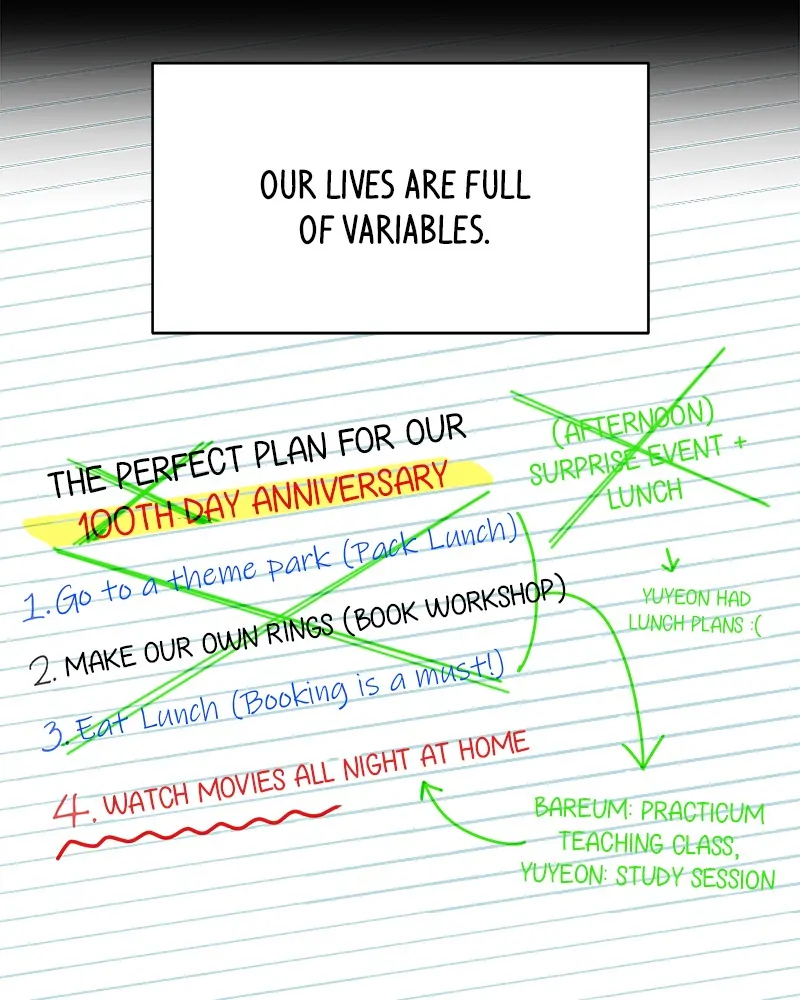 OUR LIVES ARE FULL
OF VARIABLES.
THE PERFECT PLAN FOR OUR
100TH DAY ANNIVERSARY
1. Go to a theme park (Pack Lunch)
2. MAKE OUR OWN RINGS (BOOK WORKSHOP)
3. Eat Lunch (Booking is a must!)
4. WATCH MOVIES ALL NIGHT AT HOME
(AFTERNOON)
SURPRISE EVENT +
LUNCH
YUYEON HAD
LUNCH PLANS :(
BAREUM: PRACTICUM
TEACHING CLASS,
YUYEON: STUDY SESSION